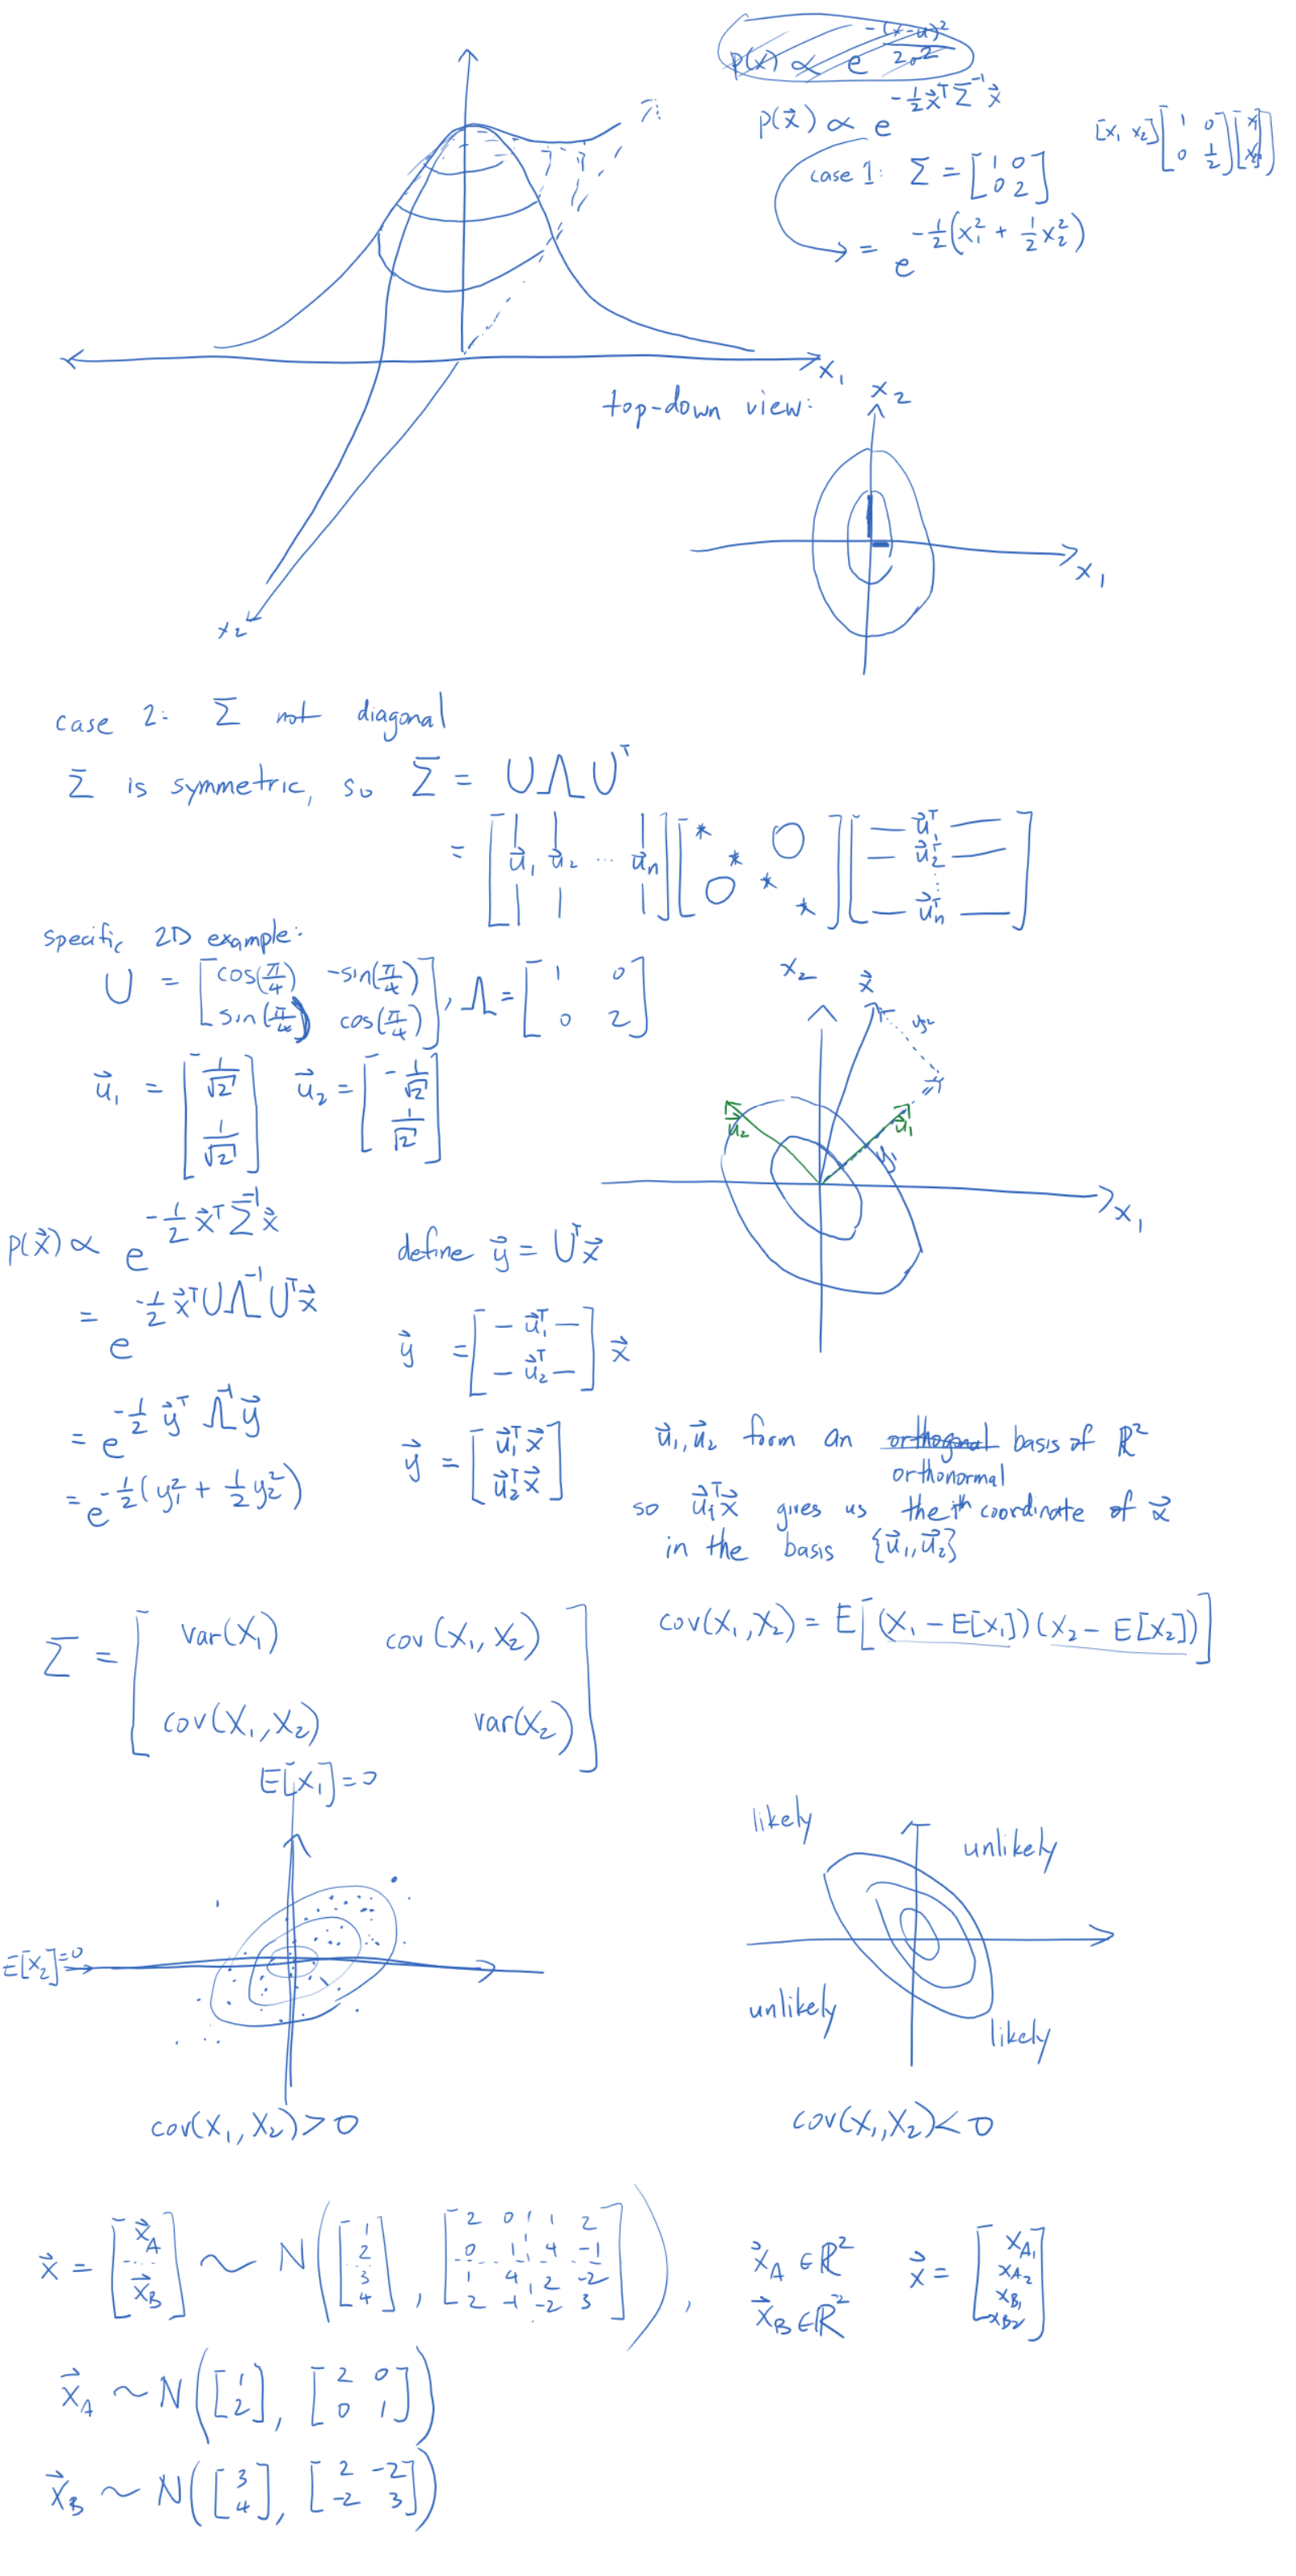 p(x) ∝ e^{-(x-u)²/2σ²}
p(x⃗) ∝ e^{-½ x⃗ᵀ Σ⁻¹ x⃗}
[x₁ x₂] [1 0; 0 ½] [x₁; x₂]
case 1: Σ = [1 0; 0 2]
= e^{-½(x₁² + ½x₂²)}
x₁
x₂
top-down view:
x₂
x₁
case 2: Σ not diagonal
Σ is symmetric, so Σ = UΛUᵀ
= [u⃗₁ u⃗₂ ... u⃗n] [* * 0 0 * *] [— u⃗₁ᵀ —; — u⃗₂ᵀ —; ⋮; — u⃗nᵀ —]
specific 2D example:
U = [cos(π/4) -sin(π/4); sin(π/4) cos(π/4)], Λ = [1 0; 0 2]
u⃗₁ = [1/√2; 1/√2] u⃗₂ = [-1/√2; 1/√2]
x₂
x⃗
y₂
u⃗₂
u⃗₁
y₁
x₁
p(x⃗) ∝ e^{-½ x⃗ᵀ Σ⁻¹ x⃗}
= e^{-½ x⃗ᵀUΛ⁻¹Uᵀx⃗}
= e^{-½ y⃗ᵀ Λ⁻¹ y⃗}
= e^{-½(y₁² + ½y₂²)}
define y⃗ = Uᵀx⃗
y⃗ = [— u⃗₁ᵀ —; — u⃗₂ᵀ —] x⃗
y⃗ = [u⃗₁ᵀx⃗; u⃗₂ᵀx⃗]
u⃗₁, u⃗₂ form an orthogonal basis of ℝ²
orthonormal
so u⃗ᵢᵀx⃗ gives us the iᵗʰ coordinate of x⃗
in the basis {u⃗₁, u⃗₂}
Σ = [var(X₁) cov(X₁, X₂); cov(X₁, X₂) var(X₂)]
cov(X₁, X₂) = E[(X₁ - E[X₁])(X₂ - E[X₂])]
E[X₁] = 0
E[X₂] = 0
cov(X₁, X₂) > 0
likely
unlikely
unlikely
likely
cov(X₁, X₂) < 0
x⃗ = [x⃗A; x⃗B] ~ N([1; 2; 3; 4], [2 0 1 2; 0 1 4 -1; 1 4 2 -2; 2 -1 -2 3]),
x⃗A ∈ ℝ²
x⃗B ∈ ℝ²
x⃗ = [xA₁; xA₂; xB₁; xB₂]
x⃗A ~ N([1; 2], [2 0; 0 1])
x⃗B ~ N([3; 4], [2 -2; -2 3])